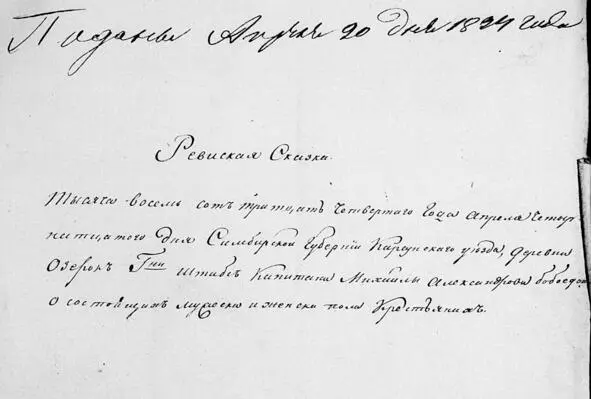 Поданы Апреля 20 дня 1834 года
Ревиская Сказка.
Тысяча восемь сотъ тритцать четвертаго Года апреля четыр
натцатого дня Симбирской Губернии Карсунского уезда, деревни
Озерок Гжи штабсъ Капитана Михайлы Александрова
о состоящихъ мужеска и женска пола Крестьянихъ.